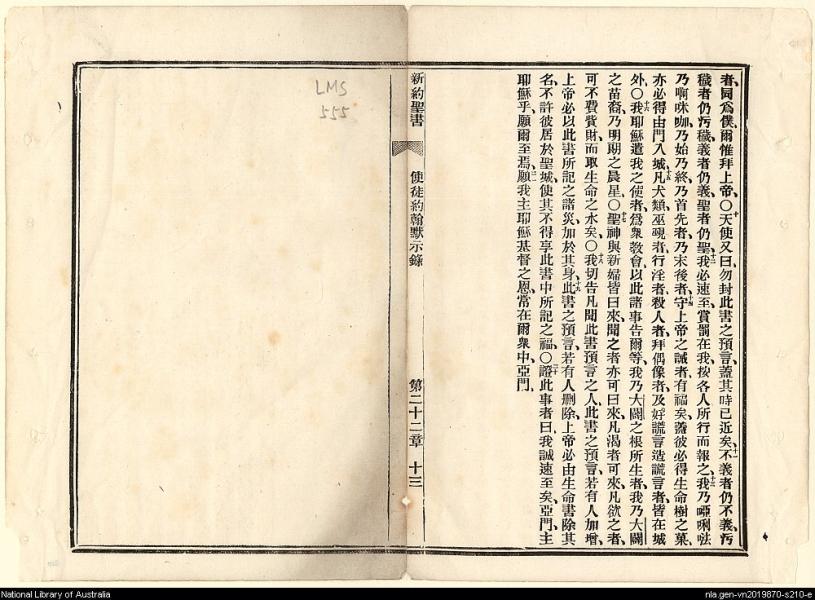 者、同爲僕、爾惟拜上帝、〇十天使又曰、勿封此書之預言、蓋其時已近矣、十一不義者仍不義、汚
穢者仍汚穢、義者仍義、聖者仍聖、十二我必速至、賞罰在我、按各人所行而報之、十三我乃啞唎
乃啊咪咖、乃始乃終、乃首先者、乃末後者、十四守上帝之誡者有福矣、蓋彼必得生命樹之菓、
亦必得由門入城、十五凡犬類、巫覡者、行淫者、殺人者、拜偶像者、及好謊言造謊言者、皆在城
外、〇十六我耶穌遣我之使者、爲衆敎會以此諸事告爾等、我乃大闢之根所生者、我乃大闢
之苗裔、乃明朗之晨星、〇十七聖神與新婦皆曰來、聞之者亦可曰來、凡渴者可來、凡欲之者、
可不費貲財、而取生命之水矣、〇十八我切告凡聞此書預言之人、此書之預言、若有人加增、
上帝必以此書所記之諸災、加於其身、十九此書之預言、若有人删除、上帝必由生命書除其
名、不許彼居於聖城、使其不得享此書中所記之福、〇二十證此事者曰、我誠速至矣、亞門、主
耶穌乎、願爾至焉、二一願我主耶穌基督之恩、常在爾衆中、亞門、
新約聖書 使徒約翰默示錄 第二十二章 十三
LMS
555
National Library of Australia
nla.gen-vn2019870-s210-e